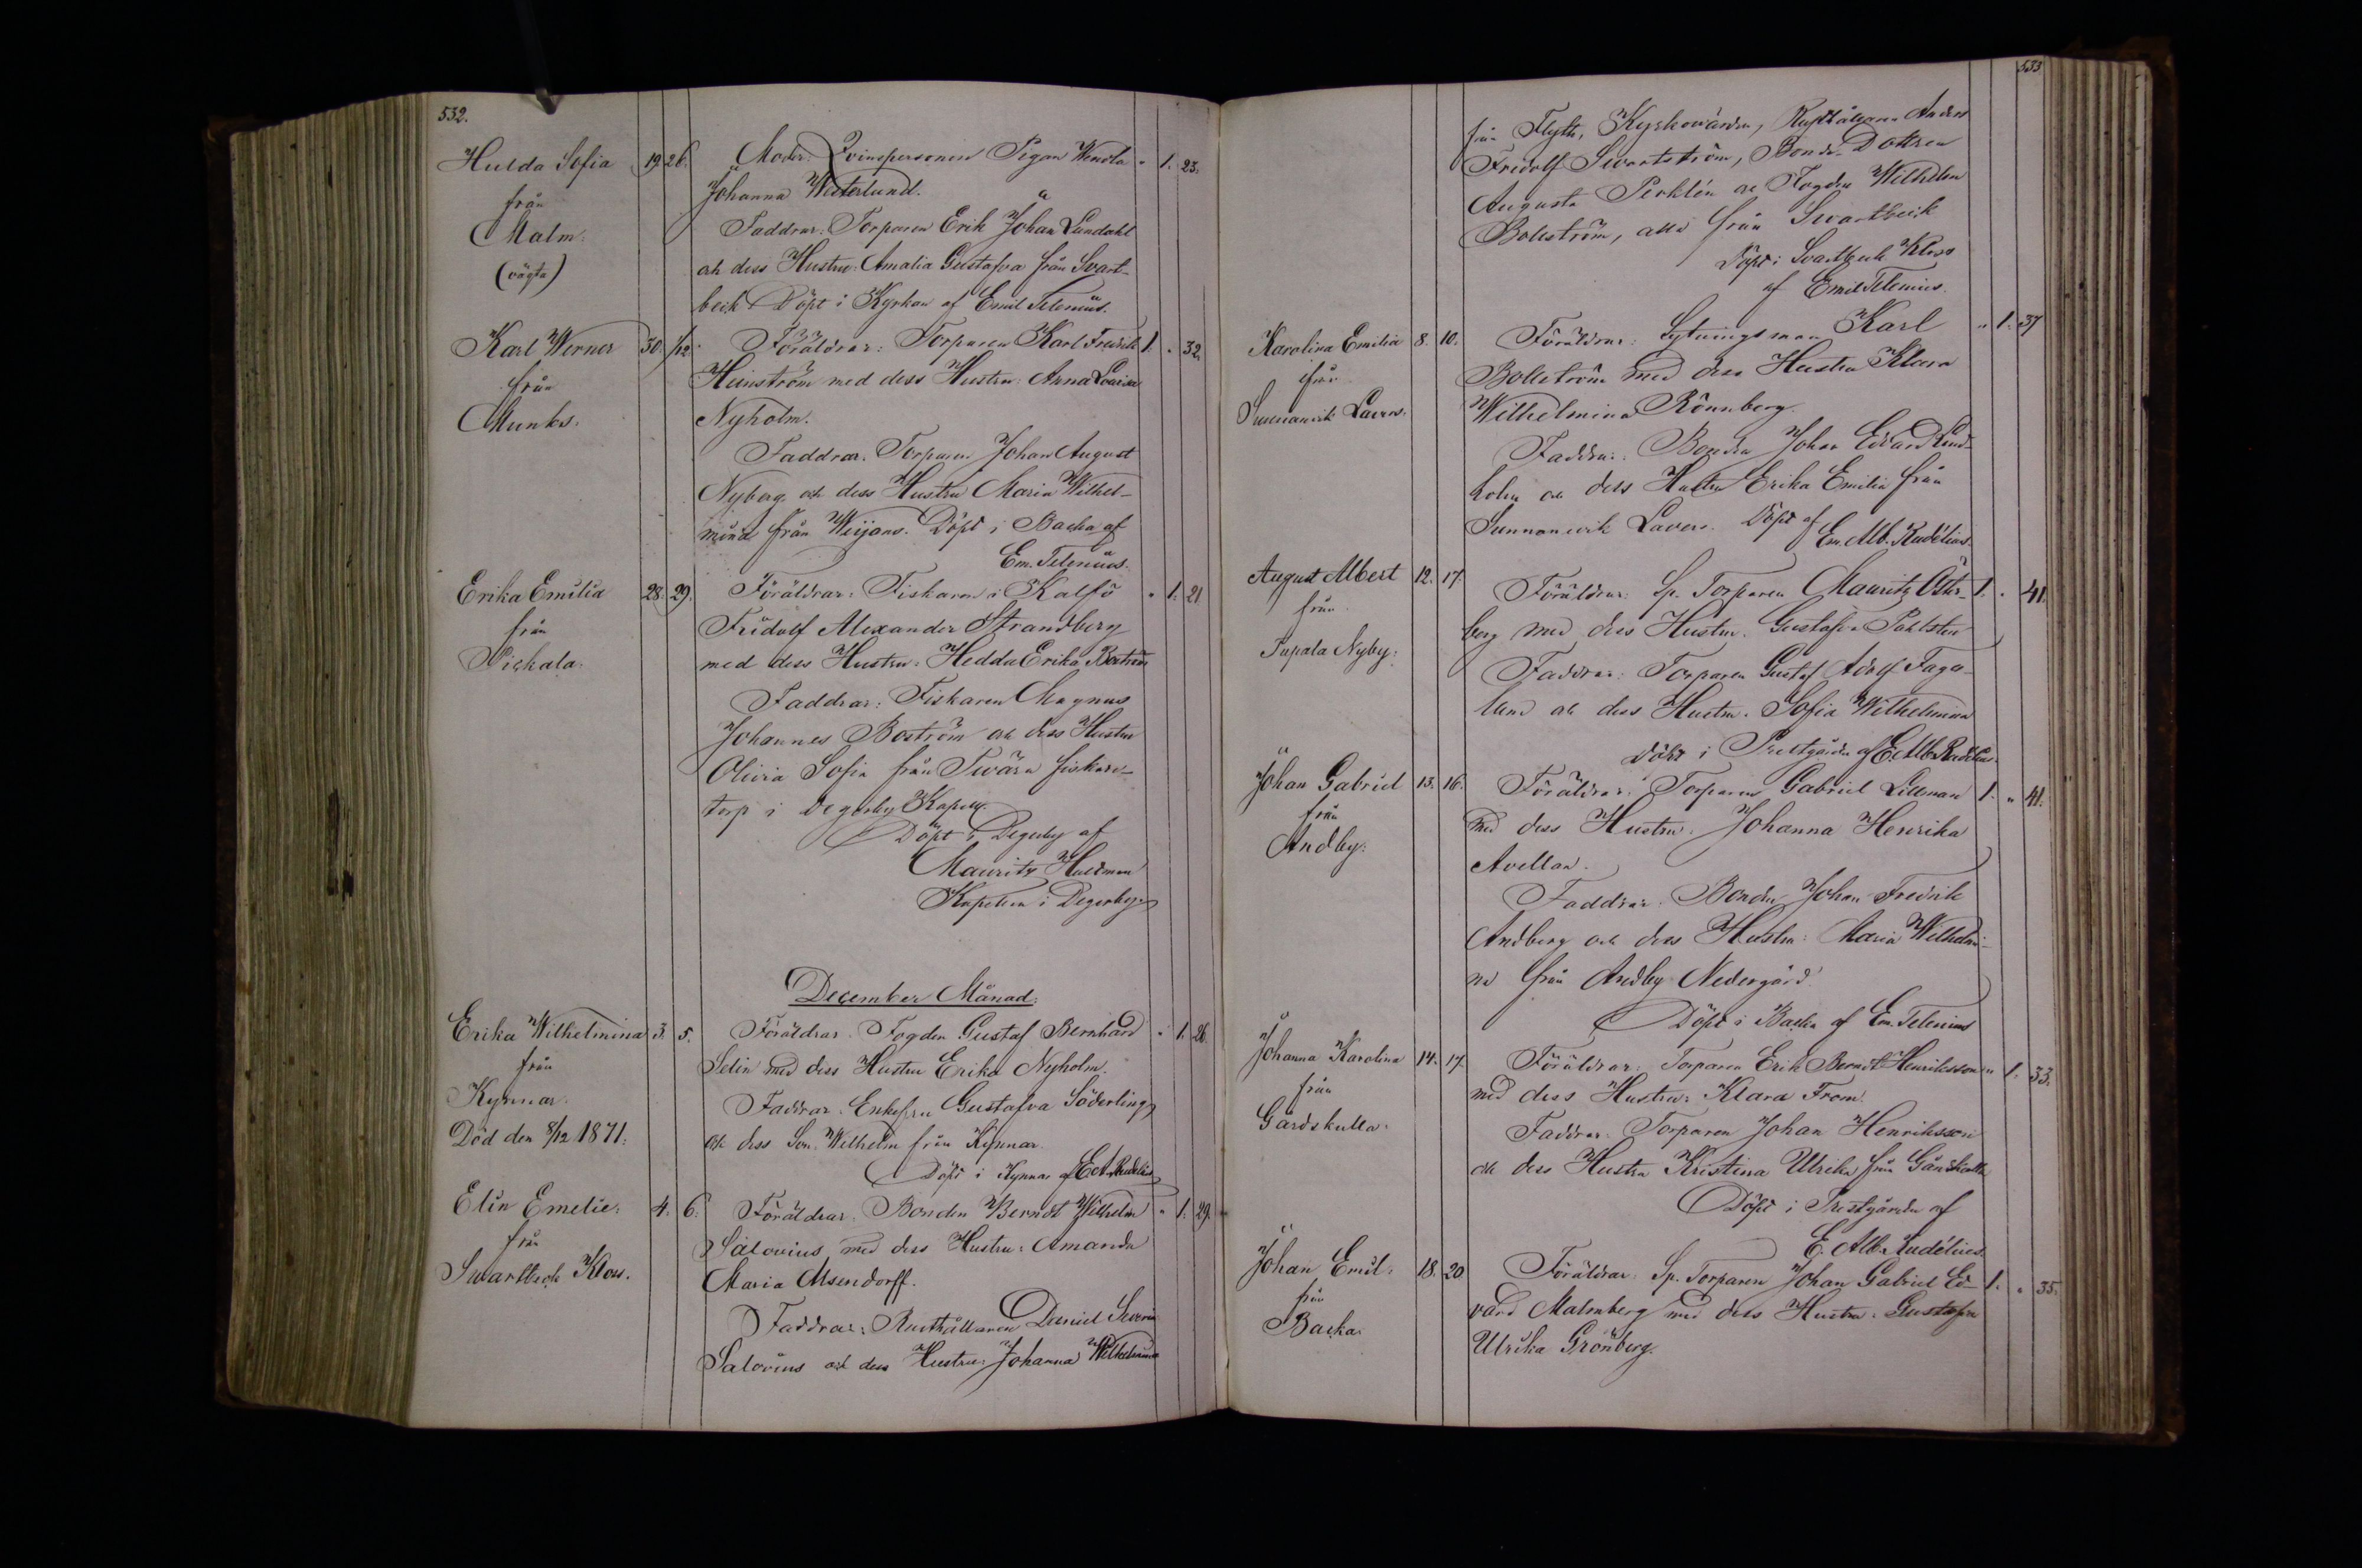 532.
Hulda Sofia 19 26. Moder: Qvinspersonen Pigan Wendla " 1. 23.
från Johanna Westerlund.
Malm. Faddrar: Torparen Erik Johan Lundahl
(oägta) och dess Hustru: Amalia Gustafva från Svart-
beck Döpt i Kyrkan af Emil Telenius.
Karl Werner 30. 1/12. Föräldrar: Torparen Karl Fredrik 1. " 32.
från Heinström med dess Hustru: Anna Lovisa
Munks. Nyholm.
Faddrar: Torparen Johan August
Nyberg och dess Hustru Maria Wilhel-
mina från Weijans. Döpt i Backa af
Em. Telenius.
Erika Emilia 28. 29. Föräldrar: Fiskaren i Kalfö " 1. 21
från Fridolf Alexander Strandberg
Pickala. med dess Hustru: Hedda Erika Boström
Faddrar: Fiskaren Magnus
Johannes Boström och dess Hustru
Olivia Sofia från Twära fiskare-
torp i Degerby Kapell.
Döpt i Degerby af
Mauritz Hultman
Kapellan i Degerby
December Månad:
Erika Wilhelmina 3. 5. Föräldrar: Fogden Gustaf Bernhard " 1. 26.
från Selin med dess Hustru Erika Nyholm.
Kynnar. Faddrar: Enkefru Gustafva Söderling
Död den 8/12 1871. och dess Son. Wilhelm från Kynnar.
Döpt i Kynnar af E A Rudelius
Elin Emelie: 4. 6. Föräldrar: Bonden Berndt Wilhelm " 1. 29.
från Salovius med dess Hustru: Amanda
Swartbeck Klovs. Maria Alsendorff.
Faddrar: Rusthållaren Daniel Severin
Salovius och dess Hustru: Johanna Wilhelmina
533
från Flyth, Kyrkovärden, Rusthållaren Anders
Fridolf Swartström, Bonde-Dottren
Augusta Perklén och Fogden Wilhelm
Bollström, alla från Swartbeck
Döpt i Svartbeck Klovs
af Emil Telenius.
Karolina Emilia 8. 10. Föräldrar: Sytningsman Karl " 1. 37
ifrån Bollström med dess Hustru Klara
Sunnanvik Lavers. Wilhelmina Rönnberg.
Faddrar: Bonden Johan Edvard Lind-
holm och dess Hustru Erika Emilia från
Sunnanvik Lavers. Döpt af
Em. Alb. Rudélius.
August Albert 12. 17. Föräldrar: Sp. Torparen Mauritz Öster- 1. " 41.
från berg med dess Hustru. Gustafva Pahlsten
Pupala Nyby: Faddrar: Torparen Gustaf Adolf Fager-
lund och dess Hustru. Sofia Wilhelmina
Döpt i Prestgården af E. Alb. Rudélius.
Johan Gabriel 13. 16. Föräldrar: Torparen Gabriel Lillman 1. " 41.
från med dess Hustru. Johanna Henrika
Andby: Avellan.
Faddrar: Bonden Johan Fredrik
Andberg och dess Hustru: Maria Wilhelmi-
na från Andby Nedergård
Döpt i Backa af Em. Telenius
Johanna Karolina 14. 17. Föräldrar: Torparen Erik Berndt Henriksson " 1. 33.
från med dess Hustru: Klara From.
Gårdskulla: Faddrar: Torparen Johan Henriksson
och dess Hustru Kristina Ulrika från Gårdskulla
Döpt i Prestgården af
E. Alb. Rudélius
Johan Emil. 18. 20 Föräldrar: Sp. Torparen Johan Gabriel Ed- 1. " 35.
från vard Malmberg med dess Hustru: Gustafva
Backa: Ulrika Grönberg.